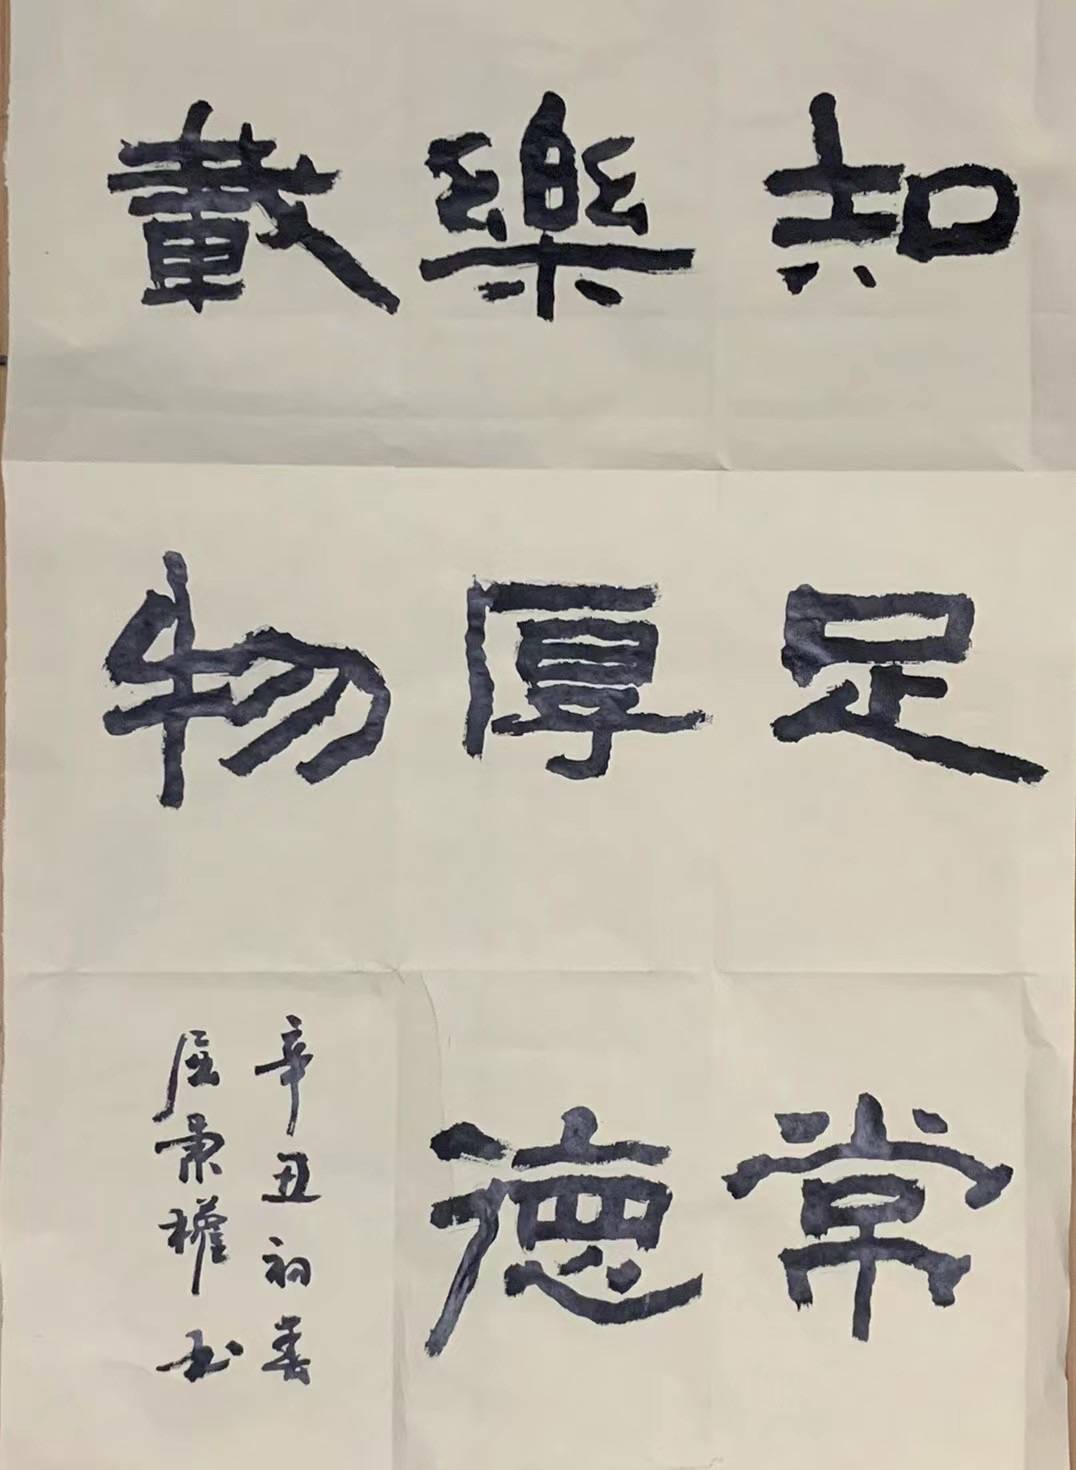 知足常
樂厚德
載物
辛丑初春
屈秉權书